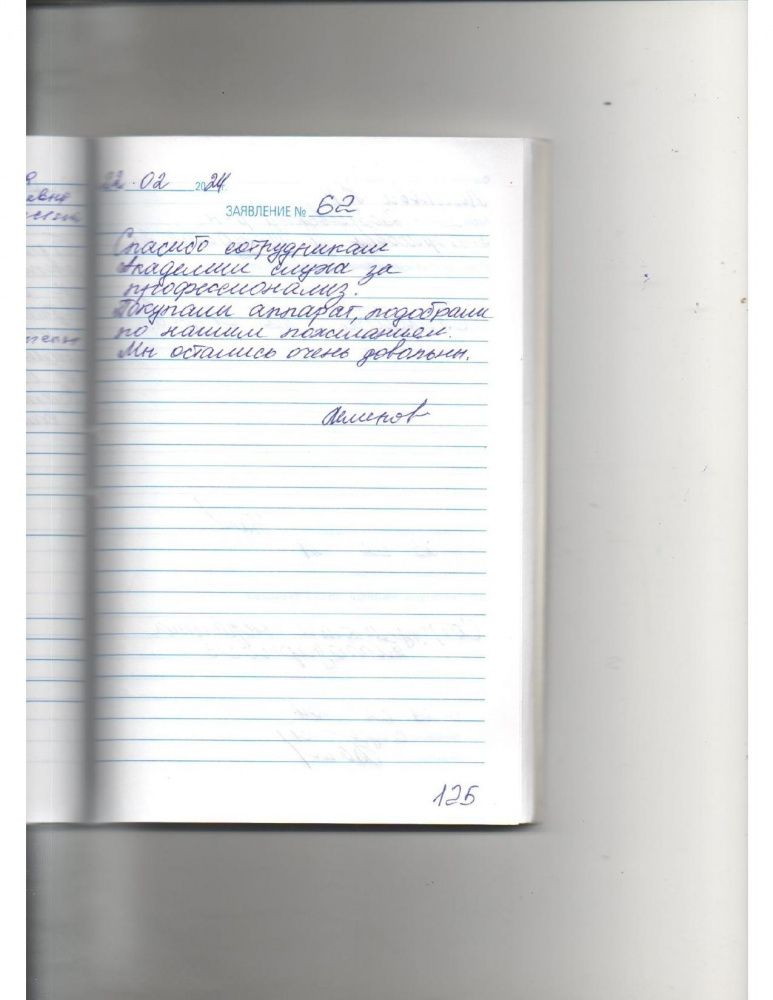 22.02 2024 г.
ЗАЯВЛЕНИЕ № 62
Спасибо сотрудникам
Академии слуха за
профессионализ.
Покупали аппарат, подобрали
по нашим пожеланием.
Мы остались очень довольны.
125